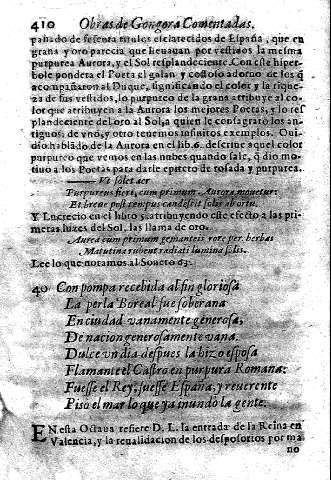 410 Obras de Gongora Comentadas.
pañado de sesenta titulos esclarecidos de España, que en
grana y oro parecia que lleuauan por vestidos la mesma
purpurea Aurora, y el Sol resplandeciente. Con este hiper-
bole pondera el Poeta el galan y costoso adorno de los q̃
acompañaron al Duque, significando el color y la rique-
za de sus vestidos, lo purpureo de la grana atribuye al co-
lor que atribuyen a la Aurora los mejores Poetas, y lo res
plandeciente del oro al Sol, a quien le consagrarō los an-
tiguos; de vno, y otro tenemos infinitos exemplos. Oui-
dio hablādo de la Aurora en el lib. 6. descriue aquel color
purpureo que vemos en las nubes quando sale, q̃ dio mo-
tiuo a los Poetas para darle epiteto de rosada y purpurea.
Vt solet aer
Purpureus fieri, cum primum Aurora mouetur:
Et breue post tempus candescit solis abortu.
Y Lucrecio en el libro 5. atribuyendo este efecto a las pri-
meras luzes del Sol, las llama de oro.
Aurea cum primum gemanteis rore per herbas
Matutina rubent radiati lumina solis.
Lee lo que notamos al Soneto 63.
40 Con pompa recebida al fin gloriosa
La perla Boreal fue soberana
En ciudad vanamente generosa,
De nacion generosamente vana.
Dulce vn dia despues la hizo esposa
Flamante el Castro en purpura Romana;
Fuesse el Rey, fuesse España, y reuerente
Piso el mar lo que ya inundò la gente.
EN esta Octaua refiere D. L. la entrada de la Reina en
Valencia, y la reualidacion de los desposorios por ma
no